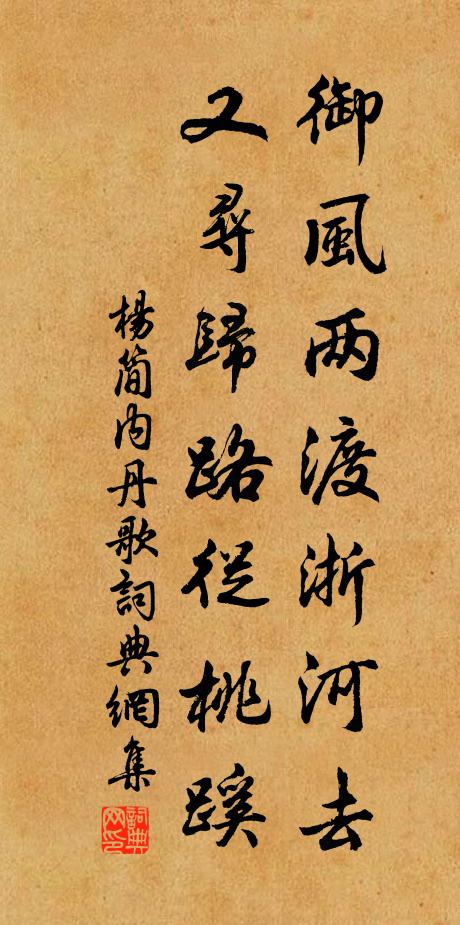 御風两渡浙河去
又尋歸路從桃蹊
楊简内丹歌詞典網集
詞典网印